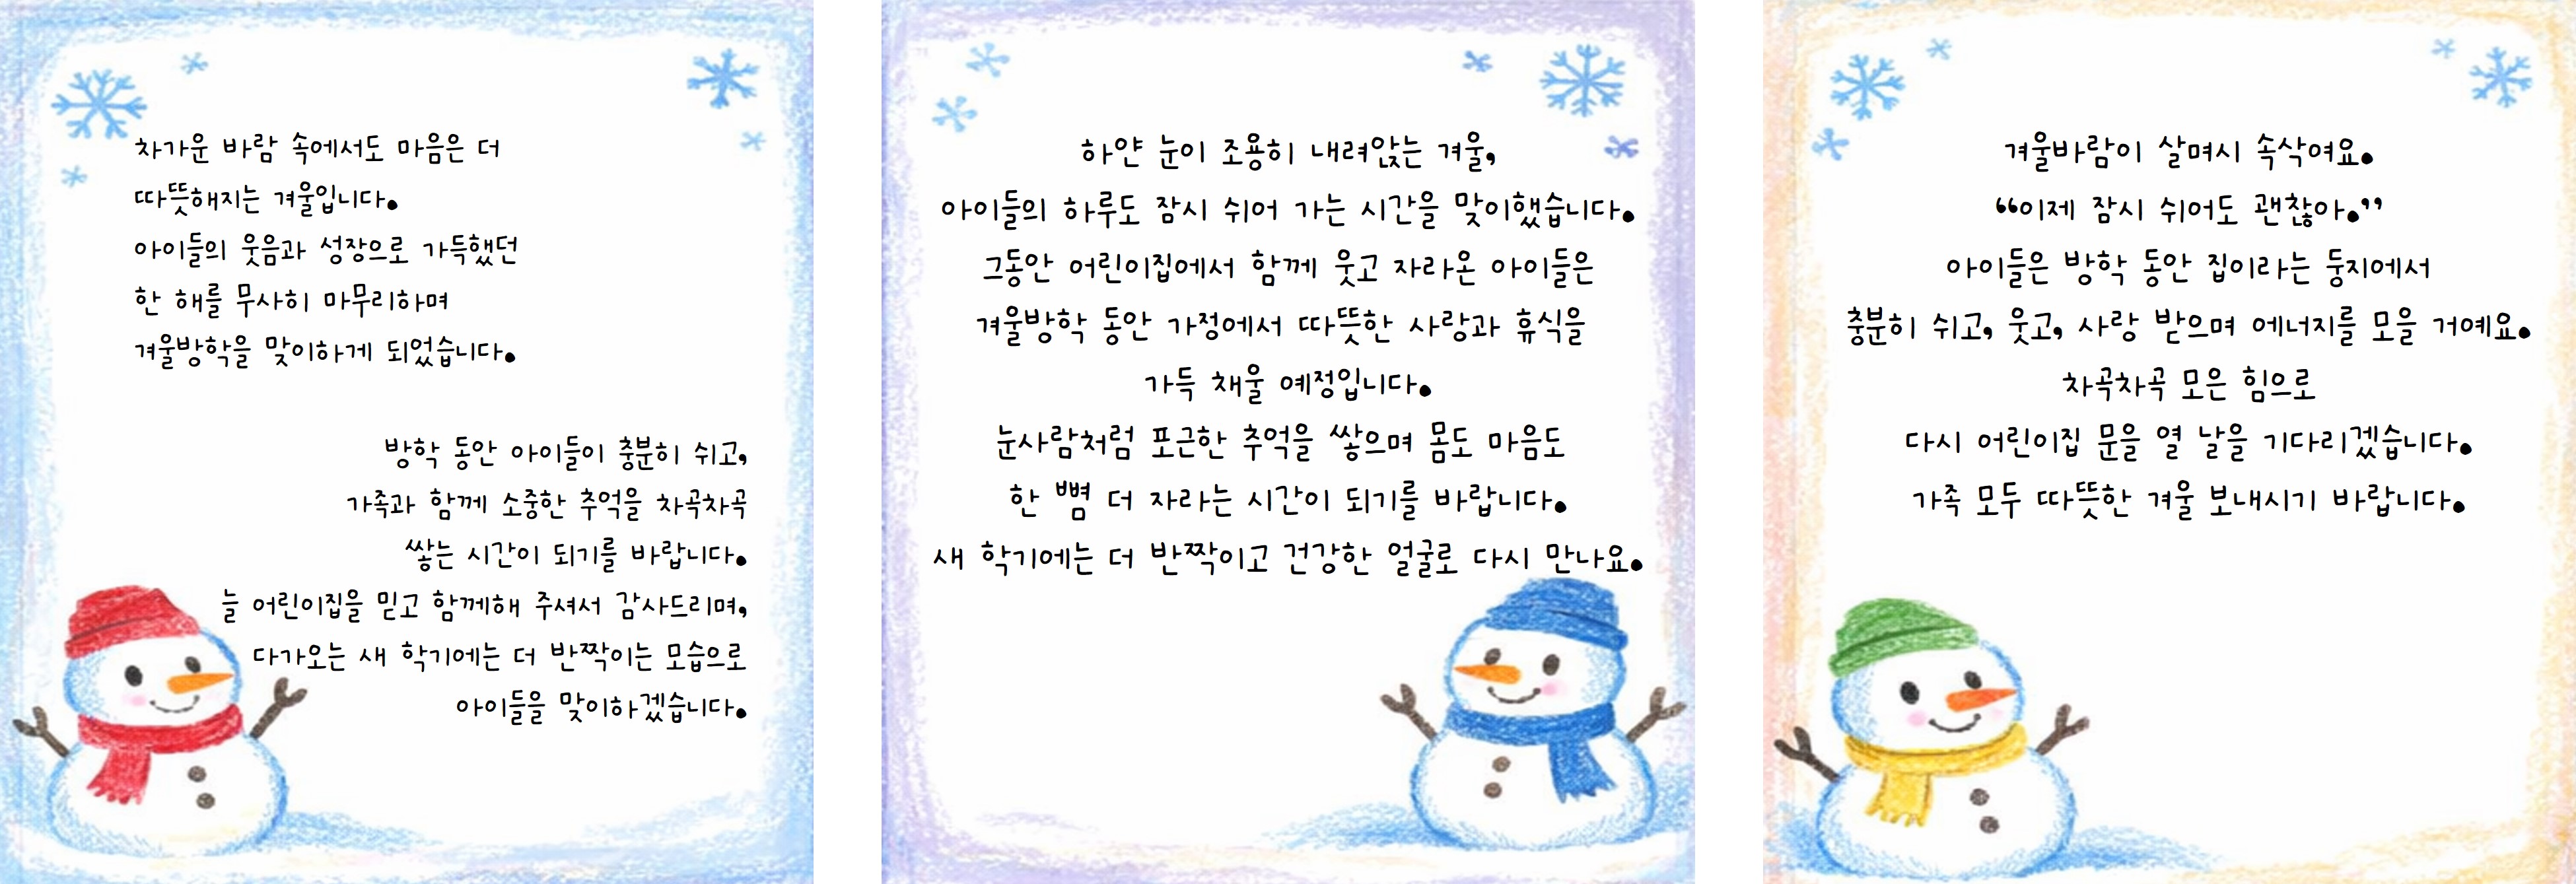 차가운 바람 속에서도 마음은 더
따뜻해지는 겨울입니다.
아이들의 웃음과 성장으로 가득했던
한 해를 무사히 마무리하며
겨울방학을 맞이하게 되었습니다.
방학 동안 아이들이 충분히 쉬고,
가족과 함께 소중한 추억을 차곡차곡
쌓는 시간이 되기를 바랍니다.
늘 어린이집을 믿고 함께해 주셔서 감사드리며,
다가오는 새 학기에는 더 반짝이는 모습으로
아이들을 맞이하겠습니다.
하얀 눈이 조용히 내려앉는 겨울,
아이들의 하루도 잠시 쉬어 가는 시간을 맞이했습니다.
그동안 어린이집에서 함께 웃고 자라온 아이들은
겨울방학 동안 가정에서 따뜻한 사랑과 휴식을
가득 채울 예정입니다.
눈사람처럼 포근한 추억을 쌓으며 몸도 마음도
한 뼘 더 자라는 시간이 되기를 바랍니다.
새 학기에는 더 반짝이고 건강한 얼굴로 다시 만나요.
겨울바람이 살며시 속삭여요.
“이제 잠시 쉬어도 괜찮아.”
아이들은 방학 동안 집이라는 둥지에서
충분히 쉬고, 웃고, 사랑 받으며 에너지를 모을 거예요.
차곡차곡 모은 힘으로
다시 어린이집 문을 열 날을 기다리겠습니다.
가족 모두 따뜻한 겨울 보내시기 바랍니다.